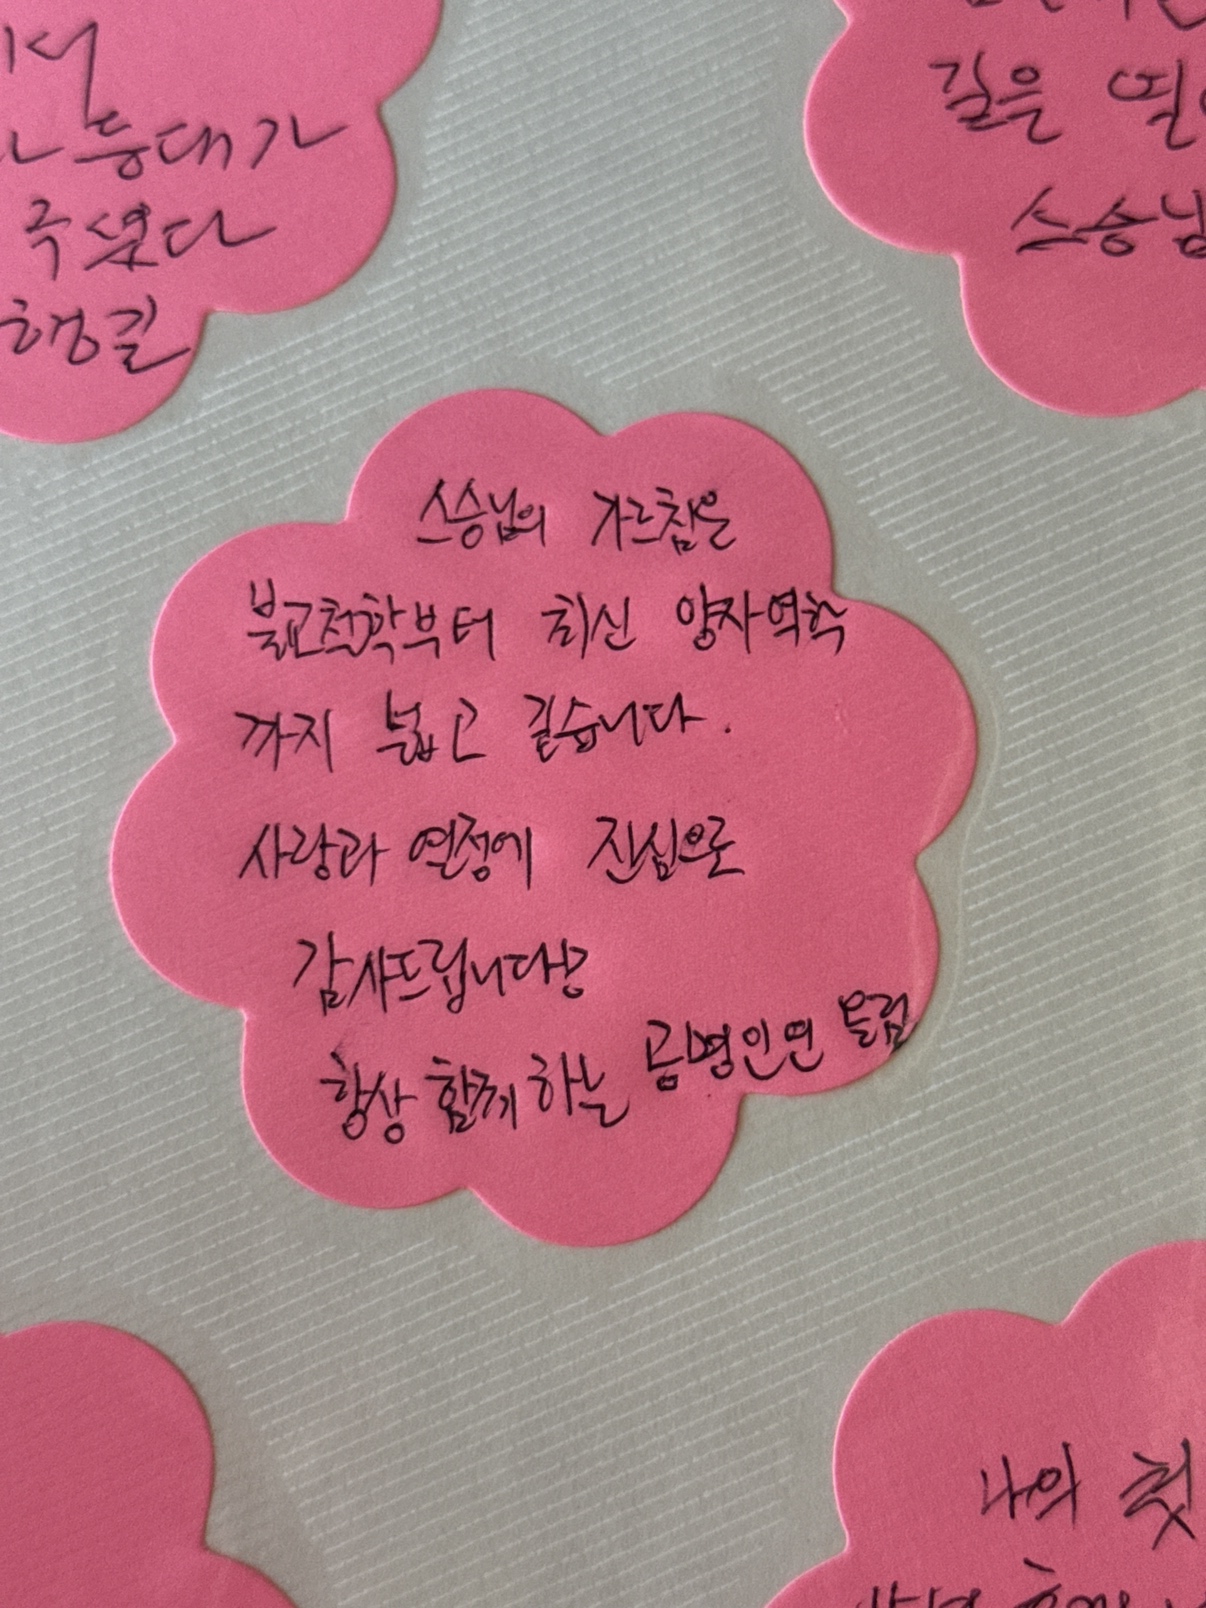 서
등대가
주셨다
행길
길은 열
스승님
스승님의 가르침은
불교철학부터 최신 양자역학
까지 넓고 깊습니다.
사랑과 열정에 진심으로
감사드립니다♡
항상 함께하는 공명인연 드림
나의 첫